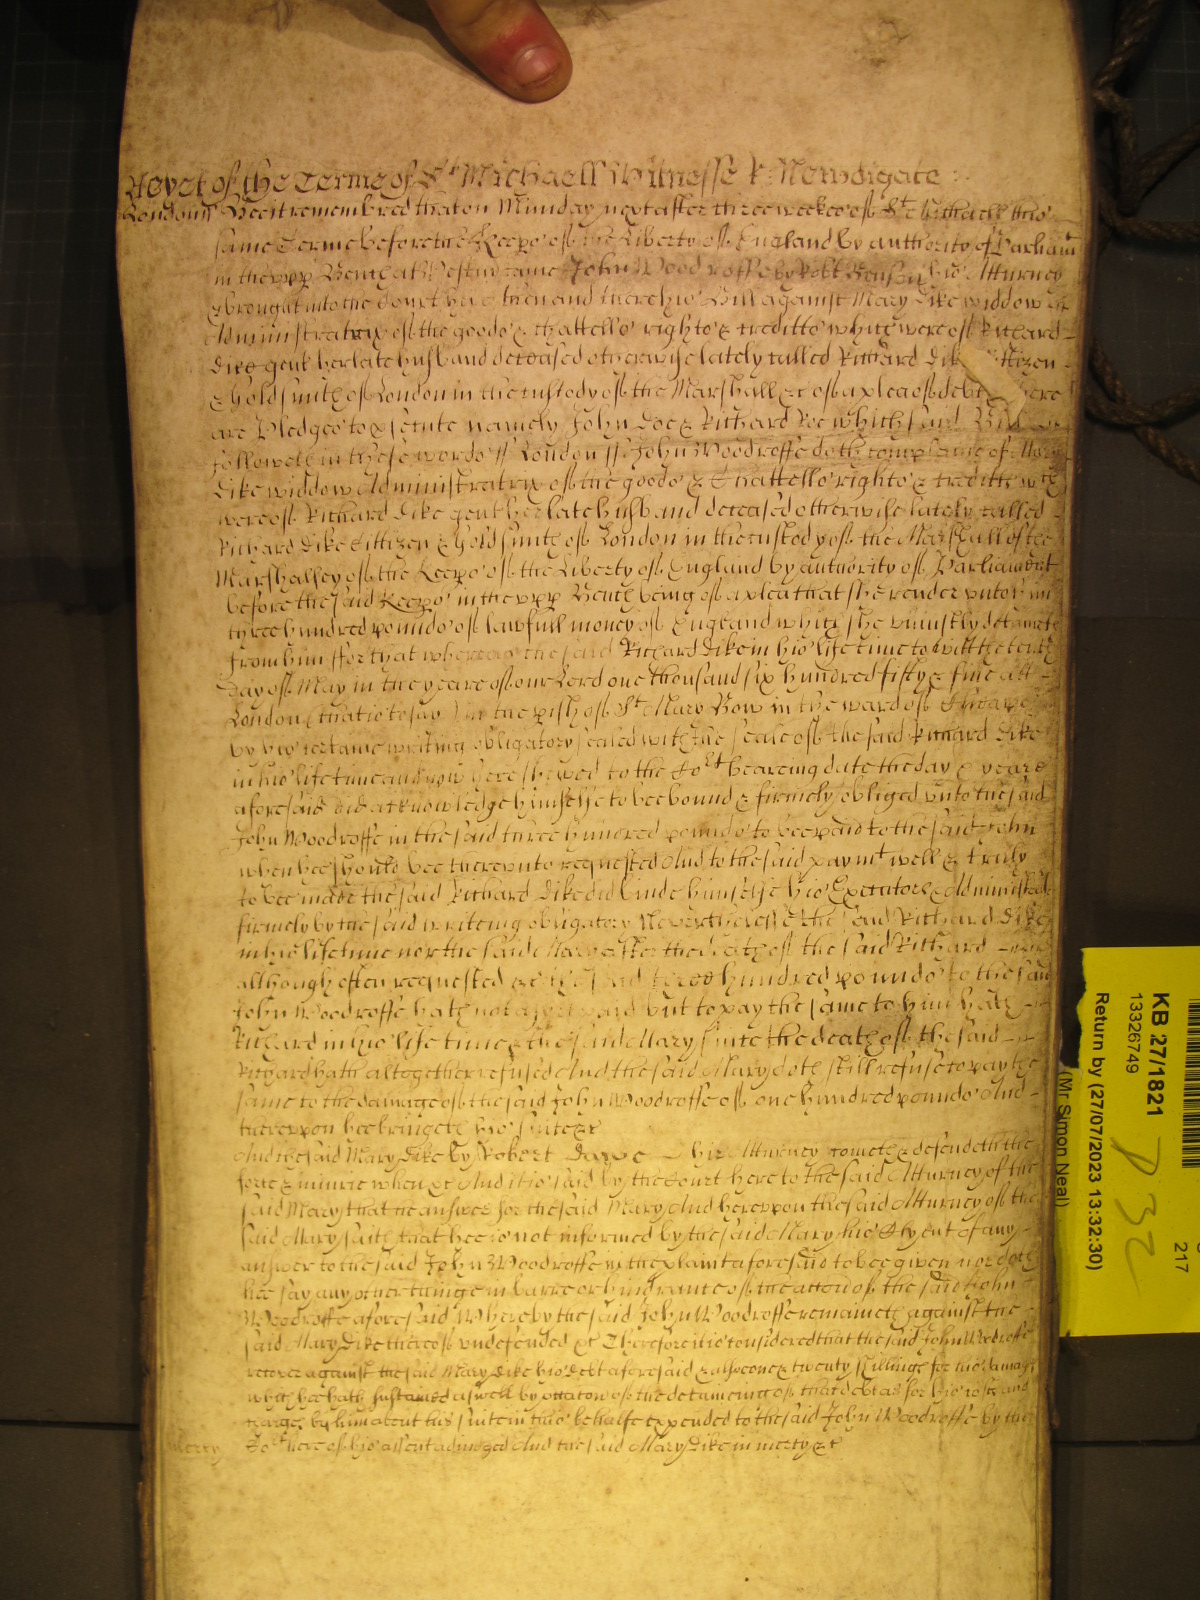 Yet of the Terme of St Michaell Witnesse R: Newdigate
London ss Bee it remembred that on Munday next after three weekes of St Michaell this
same Terme before the Keeprs of the Liberty of England by authority of Parliamt
in the uppr Bench at Westmr came John Woodroffe by Robt Benson his Atturney
& brought into the Court here then and there his Bill against Mary Dike widdow
Administratrix of the goods & chattells rights & creditts which were of Richard
Dike gent her late husband deceased otherwise lately called Richard Dike Cittizen
& Goldsmith of London in the custody of the Marshall &c of a plea of debt there
are Pledges to prosecute namely John Doe & Richard Roe which said Bill
followeth in these words ss London ss John Woodroffe doth complaine of Mary
Dike widdow Administratrix of the goods & Chattells rights & creditts wch
were of Richard Dike gent her late husband deceased otherwise lately called
Richard Dike Cittizen & Goldsmith of London in the custody of the Marshall of the
Marshalsey of the Keeprs of the Liberty of England by authority of Parliament
before the said Keeprs in the uppr Bench being of a plea that she render unto him
three hundred pounds of lawfull money of England which she uniustly detaineth
from him for that whereas the said Richard Dike in his life time to witt the tenth
day of May in the yeare of our Lord one thousand six hundred fifty & five att
London (that is to say) in the pish of St Mary Bow in the ward of Cheape
by his certaine writing obligatory sealed with the seale of the said Richard Dike
in his life time and now here shewed to the Cort beareing date the day & yeare
aforesaid did acknowledge himselfe to bee bound & firmely obliged unto the said
John Woodroffe in the said three hundred pounds to bee paid to the said John
when hee should bee thereunto requested And to the said paymt well & truly
to bee made the said Richard Dike did binde himselfe his Executors & Administrators
firmely by the said writeing obligatory Neverthelesse the said Richard Dike
in his life time nor the said Mary after the death of the said Richard
although often requested &c the said three hundred pounds to the said
John Woodroffe hath not payd but to pay the same to him hath
Richard in his life time & the said Mary since the death of the said
Richard hath altogether refused And the said Mary doth still refuse to pay the
same to the damage of the said John Woodroffe of one hundred pounds And
thereupon hee bringeth his suite &c
And the said Mary Dike by Robert Dawe her Atturney cometh & defendeth the
force & iniurie when &c And it is said by the Court here to the said Atturney of the
said Mary that he answer for the said Mary And hereupon the said Atturney of the
said Mary saith that hee is not informed by the said Mary his Clyent of any
answer to the said John Woodroffe in the plaint aforesaid to bee given nor doth
hee say any other thinge in barre or hindrance of the accon of the said John
Woodroffe aforesaid Whereby the said John Woodroffe remaineth against the
said Mary Dike thereof undefended &c Therefore it is considered that the said John Woodroffe
recover against the said Mary Dike his debt aforesaid & alsoe one & twenty shillings for his damages
which hee hath sustained aswell by occasion of the detaineing of that debt as for his costs and
charges by him about his suite in this behalfe expended to the said John Woodroffe by the
mercy Cort here of his assent adiudged And the said Mary Dike in mercy &c
KB 27/1821
13326749
Return by (27/07/2023 13:32:30)
(Mr Simon Neal)
217
P 32